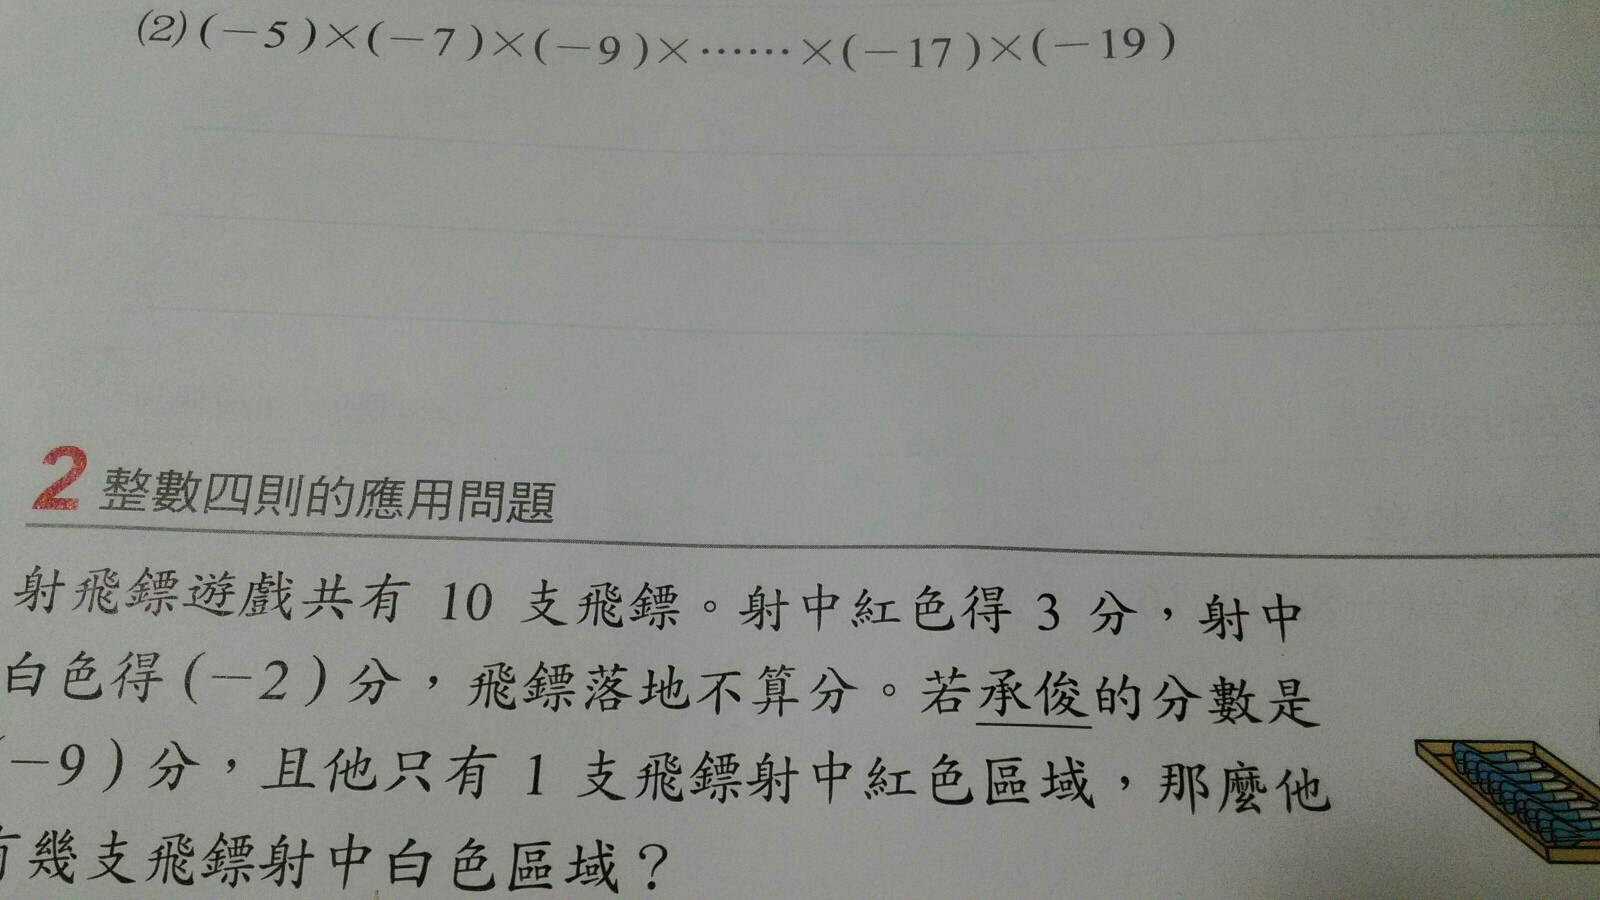 (2)(－5)×(－7)×(－9)×……×(－17)×(－19)
2 整數四則的應用問題
射飛鏢遊戲共有 10 支飛鏢。射中紅色得 3 分，射中
白色得(－2)分，飛鏢落地不算分。若承俊的分數是
(－9)分，且他只有 1 支飛鏢射中紅色區域，那麼他
有幾支飛鏢射中白色區域？